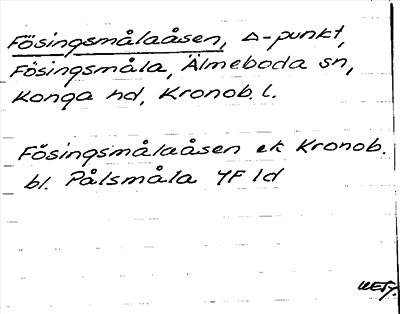 Fösingsmålaåsen, △-punkt,
Fösingsmåla, Älmeboda sn,
Konga hd, Kronob. l.
Fösingsmålaåsen ek Kronob.
bl. Pålsmåla 4F 1d